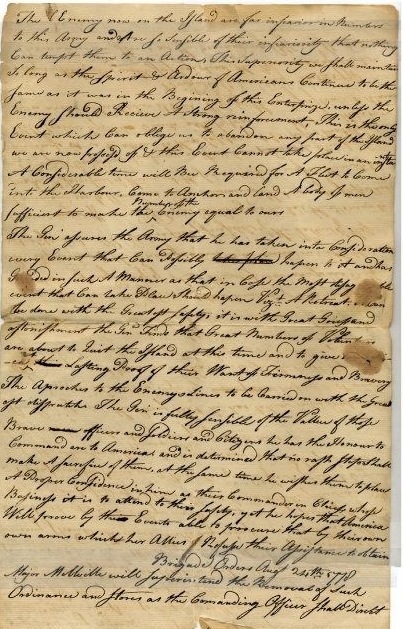 The Enemy now on the Island are far inferior in Numbers
to this Army and are so Sensible of their inferiority that nothing
Can tempt them to an Action. This Superiority we shall maintain
So long as the Spirit & Ardour of Americans Continues to be the
Same as it was in the Begining of this Enterprize, unless the
Enemy Should Recieve A Strong reinforcement, This is the only
Event which Can oblige us to abandon any part of the Island
we are now possess'd of & this Event Cannot take place in an
A Considerable time will Bee Required for A Fleet to Come
into the Harbour, Come to Anchor and land A body of men
sufficient to make the Numbers of the Enemy equal to ours
The Gen' assures the Army that he has taken into Consideration
every Event that Can Possibly hapen to it and has
in such A Manner as that in Case the Most
event that Can take Place Should hapen Viz't A Retreat
be done with the Greatest safety; it is with Great Grief and
astonishment the Gen' Finds that Great Numbers of
are about to Quit the Island at this time and to give
Lasting Proof of their Want of Firmness and Bravery
The Aproches to the Enemys Lines to be Carried on with the Great
est dispratche The Gen' is fully sensible of the Value of those
Brave officers and Soldiers and Citizens he has the Honour to
Command are to America and is determined that no rash Steps shall
make A Sacrifice of them, at the same time he wishes them to place
A Proper Confidence in him as their Commander in Chief whose
Business it is to attend to their safety, yet he hopes that America
Will prove by the Event able to procure that by their
own arms which her Allies Refuse their Assistance to obtain
Brigade Orders Augt 24th 1778
Major Mellville will Superintend the Removal of Such
Ordinance and Stores as the Comanding Officer Shall Direct